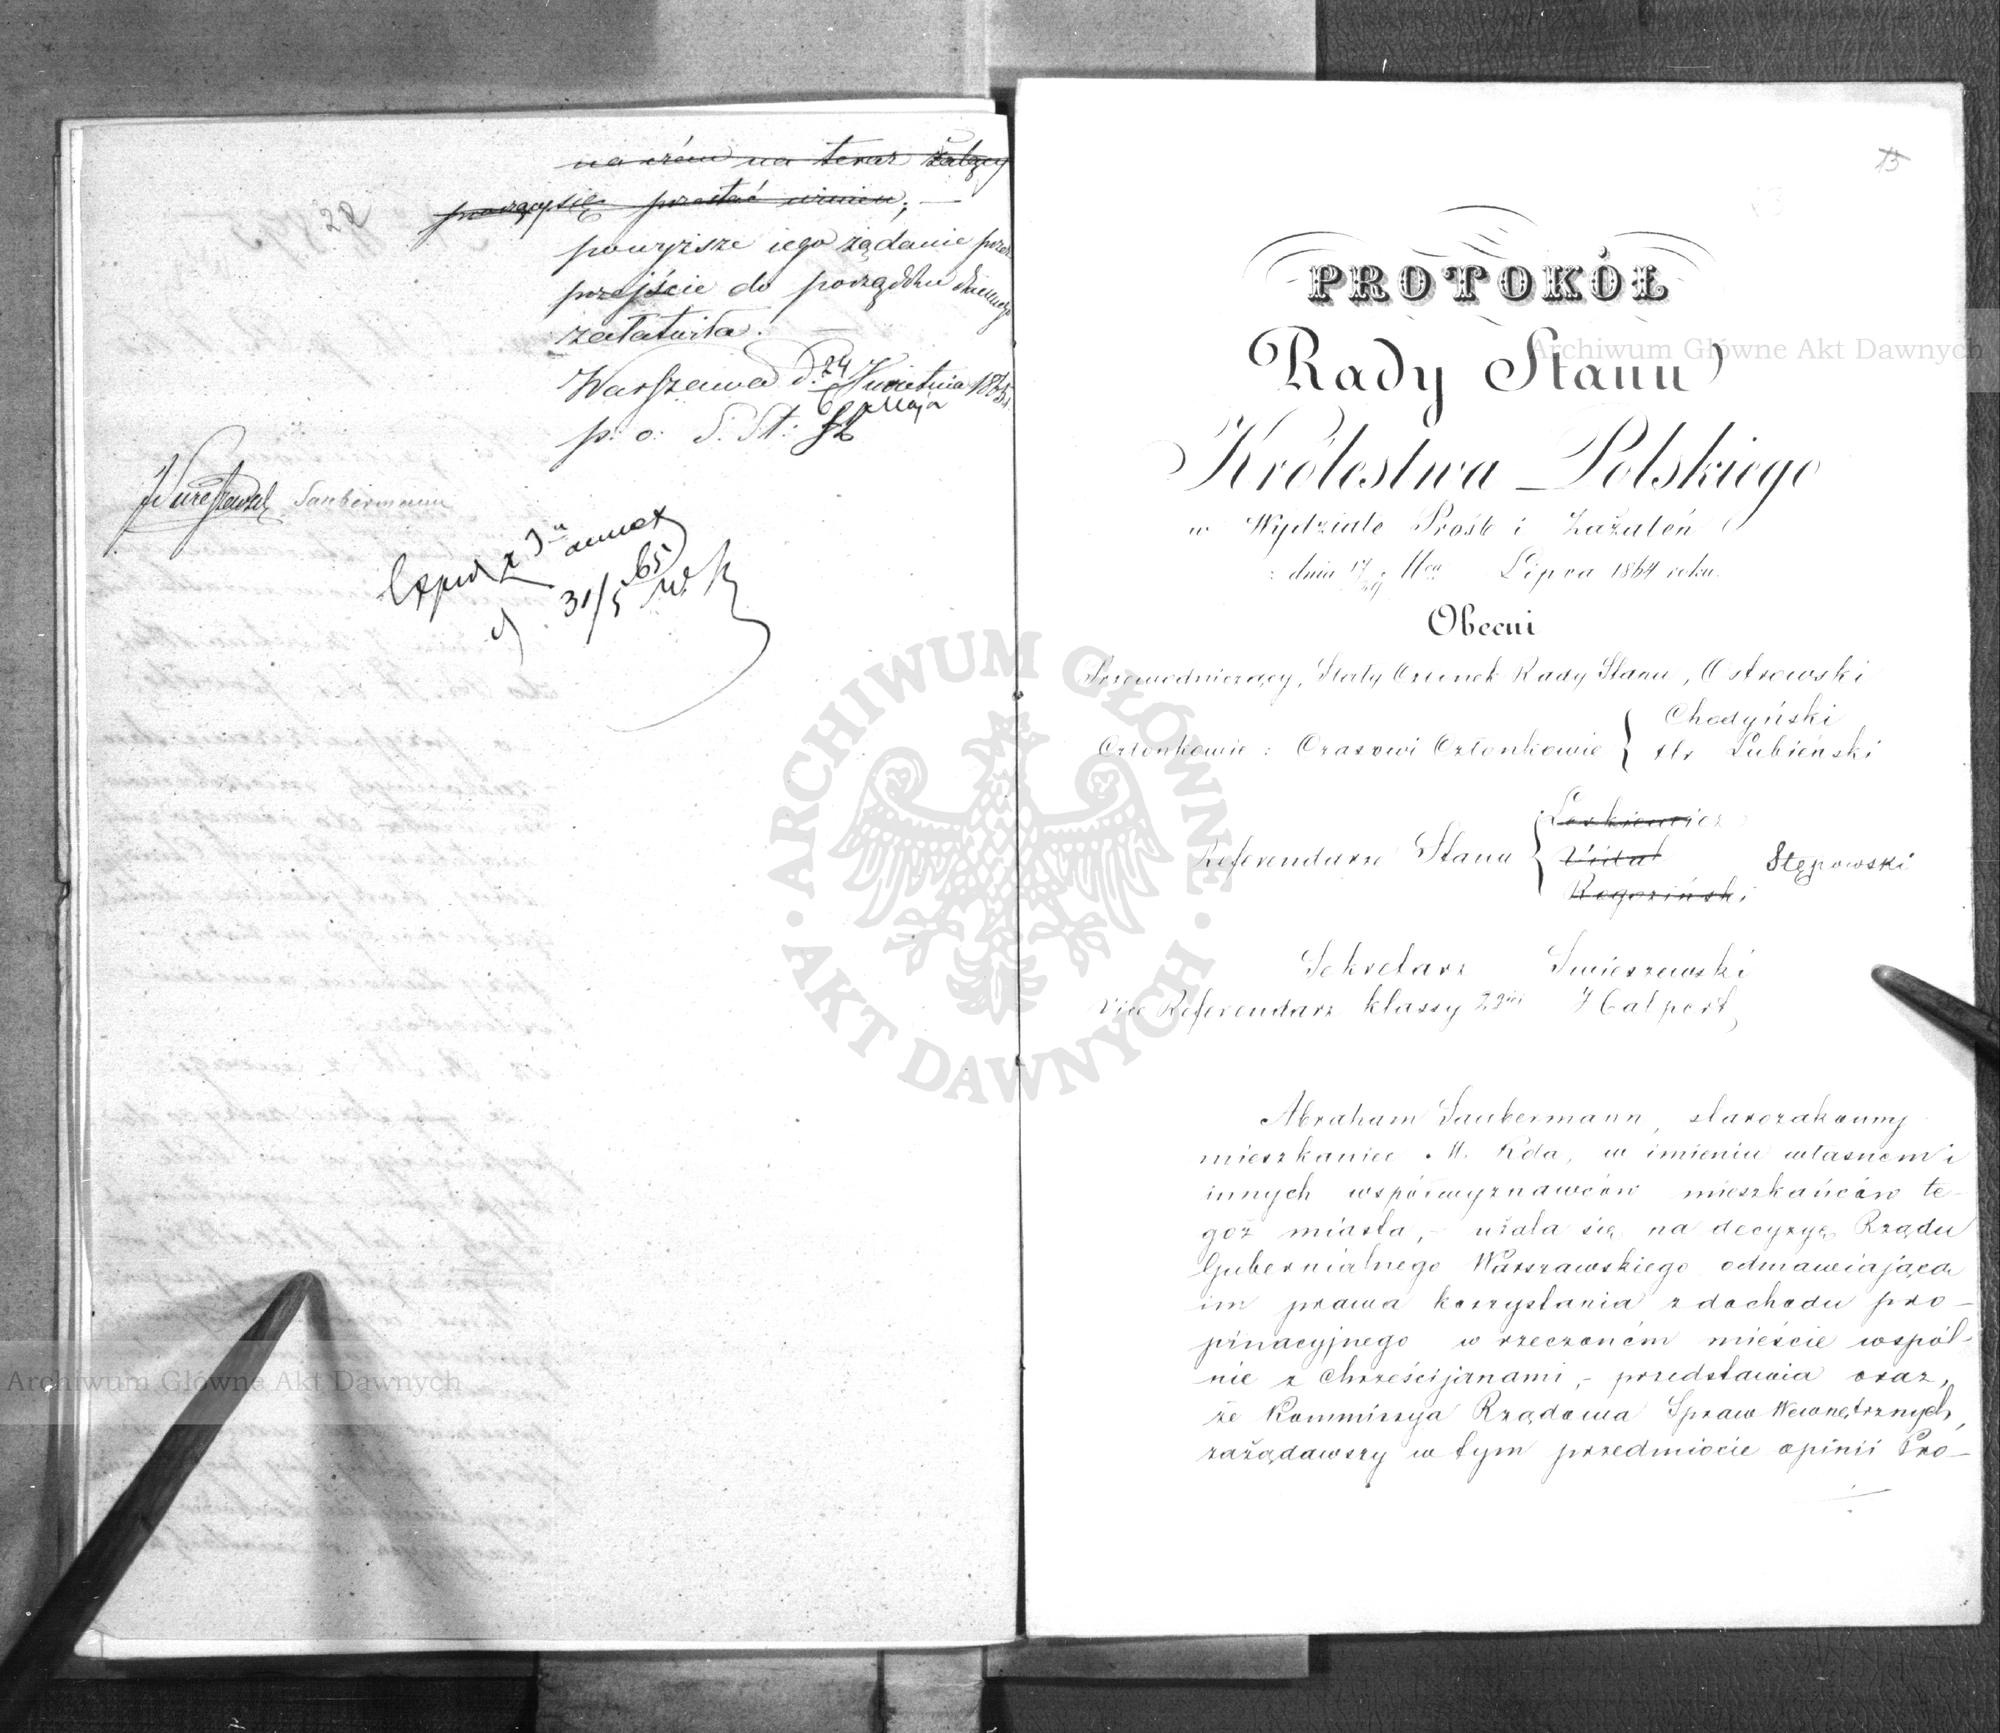 na teraz
powyższe iego żądanie przez
przejście do porządku dziennego
załatwiła. —
Warszawa d. 24 Kwietnia 1865 r.
6 Maja
p. o. S. St:
Saubermann
31/5 65
28
15
PROTOKÓŁ
Rady Stanu
Królestwa Polskiego
w Wydziale Próśb i Zażaleń
dnia 17/29 Lipca 1864 roku.
Obecni
Przewodniczący, Stały Członek Rady Stanu, Ostrowski
Członkowie: Czasowi Członkowie { Chodyński
Hr Łubieński
Referendarze Stanu { Loskiewicz
Vidal
Rogoziński
Stępowski
Sekretarz Smieszewski
Vice Referendarz klassy 2giej Halpert
Abraham Saubermann, starozakonny
mieszkaniec M. Koła, w imieniu własnem i
innych współwyznawców mieszkańców te-
goż miasta, – użala się na decyzyę Rządu
Gubernialnego Warszawskiego odmawiającą
im prawa korzystania z dochodu pro-
pinacyjnego w rzeczoném mieście wspól-
nie z Chrześcijanami, – przedstawia oraz,
że Kommissya Rządowa Spraw Wewnętrznych,
zażądawszy w tym przedmiocie opinii Pro-
Archiwum Główne Akt Dawnych
Archiwum Główne Akt Dawnych
ARCHIWUM GŁÓWNE · AKT DAWNYCH ·